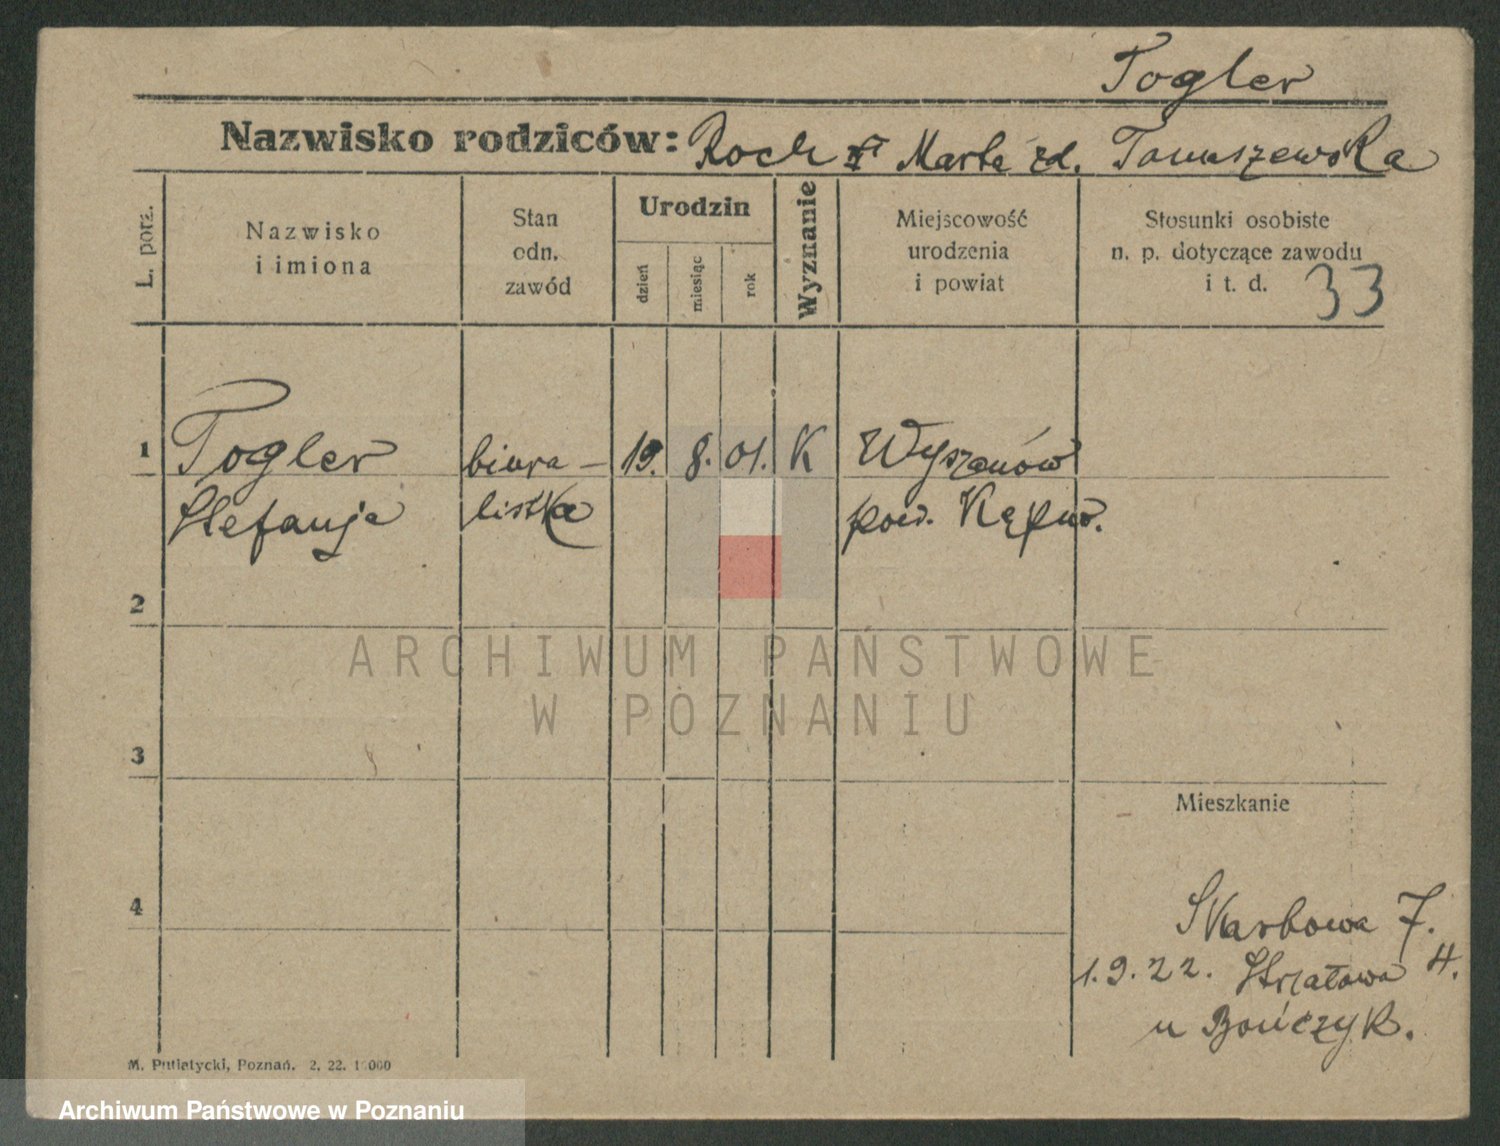 Togler
Nazwisko rodziców: Roch i Marta zd. Tomaszewska
L. porz.
Nazwisko
i imiona
Stan
odn.
zawód
Urodzin
dzień
miesiąc
rok
Wyznanie
Miejscowość
urodzenia
i powiat
Stosunki osobiste
n. p. dotyczące zawodu
i t. d. 33
1 Togler biura- 19. 8. 01. K Wyszanów
Stefanja listka pow. Kępno.
2
ARCHIWUM PAŃSTWOWE
W POZNANIU
3
Mieszkanie
4
Skarbowa 7.
1.9.22. Strzałowa 4.
u Bończyk.
M. Putiatycki, Poznań. 2, 22. 10000
Archiwum Państwowe w Poznaniu